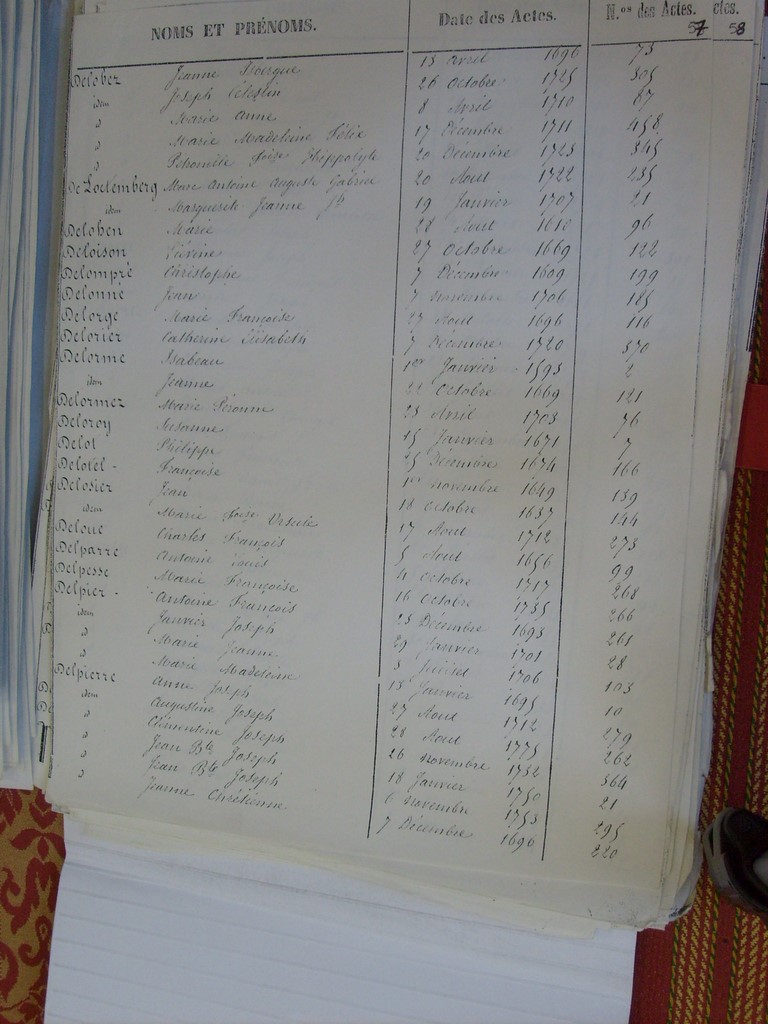 NOMS ET PRÉNOMS. Date des Actes. N.os des Actes. ctes.
57 58
Delobez Jeanne Isoergue 15 avril 1696 73
idem Joseph Célestin 26 Octobre 1725 305
d Marie Anne 8 Avril 1710 87
d Marie Madeleine Félix 17 Décembre 1711 458
d Petronille Joise Thippolyte 20 Décembre 1723 345
De Loelemberg Marc Antoine Auguste Gabriel 20 Aout 1722 235
idem Marguerite Jeanne Jh 19 Janvier 1707 21
Delohen Marie 28 Aout 1610 96
Deloison Liévine 27 Octobre 1669 122
Delompré Christophe 7 Décembre 1609 199
Delonné Jean 7 Novembre 1706 185
Delorge Marie Françoise 27 Aout 1696 116
Delorier Catherine Elisabeth 7 Décembre 1720 370
Delorme Isabeau 1er Janvier 1593 2
idem Jeanne 22 Octobre 1669 121
Delormez Marie Péronne 23 Avril 1703 76
Deloroy Susanne 15 Janvier 1671 7
Delot Philippe 25 Décembre 1674 166
Delotel - Françoise 1er Novembre 1649 139
Delosier Jean 18 Octobre 1637 144
idem Marie Joise Ursule 17 Aout 1712 273
Deloue Charles François 5 Aout 1656 99
Delparre Antoine Louis 4 Octobre 1717 268
Delpesse Marie Françoise 16 Octobre 1735 266
Delpier - Antoine François 23 Décembre 1693 261
idem Janvier Joseph 29 Janvier 1701 28
d Marie Jeanne 3 Juillet 1706 103
d Marie Madeleine 15 Janvier 1695 10
Delpierre Anne Joseph 27 Aout 1712 279
idem Augustine Joseph 28 Aout 1775 262
d Clémentine Joseph 26 Novembre 1732 364
d Jean Bte Joseph 18 Janvier 1750 21
d Jean Bte Joseph 6 Novembre 1753 295
d Jeanne Chrétienne 7 Décembre 1696 220